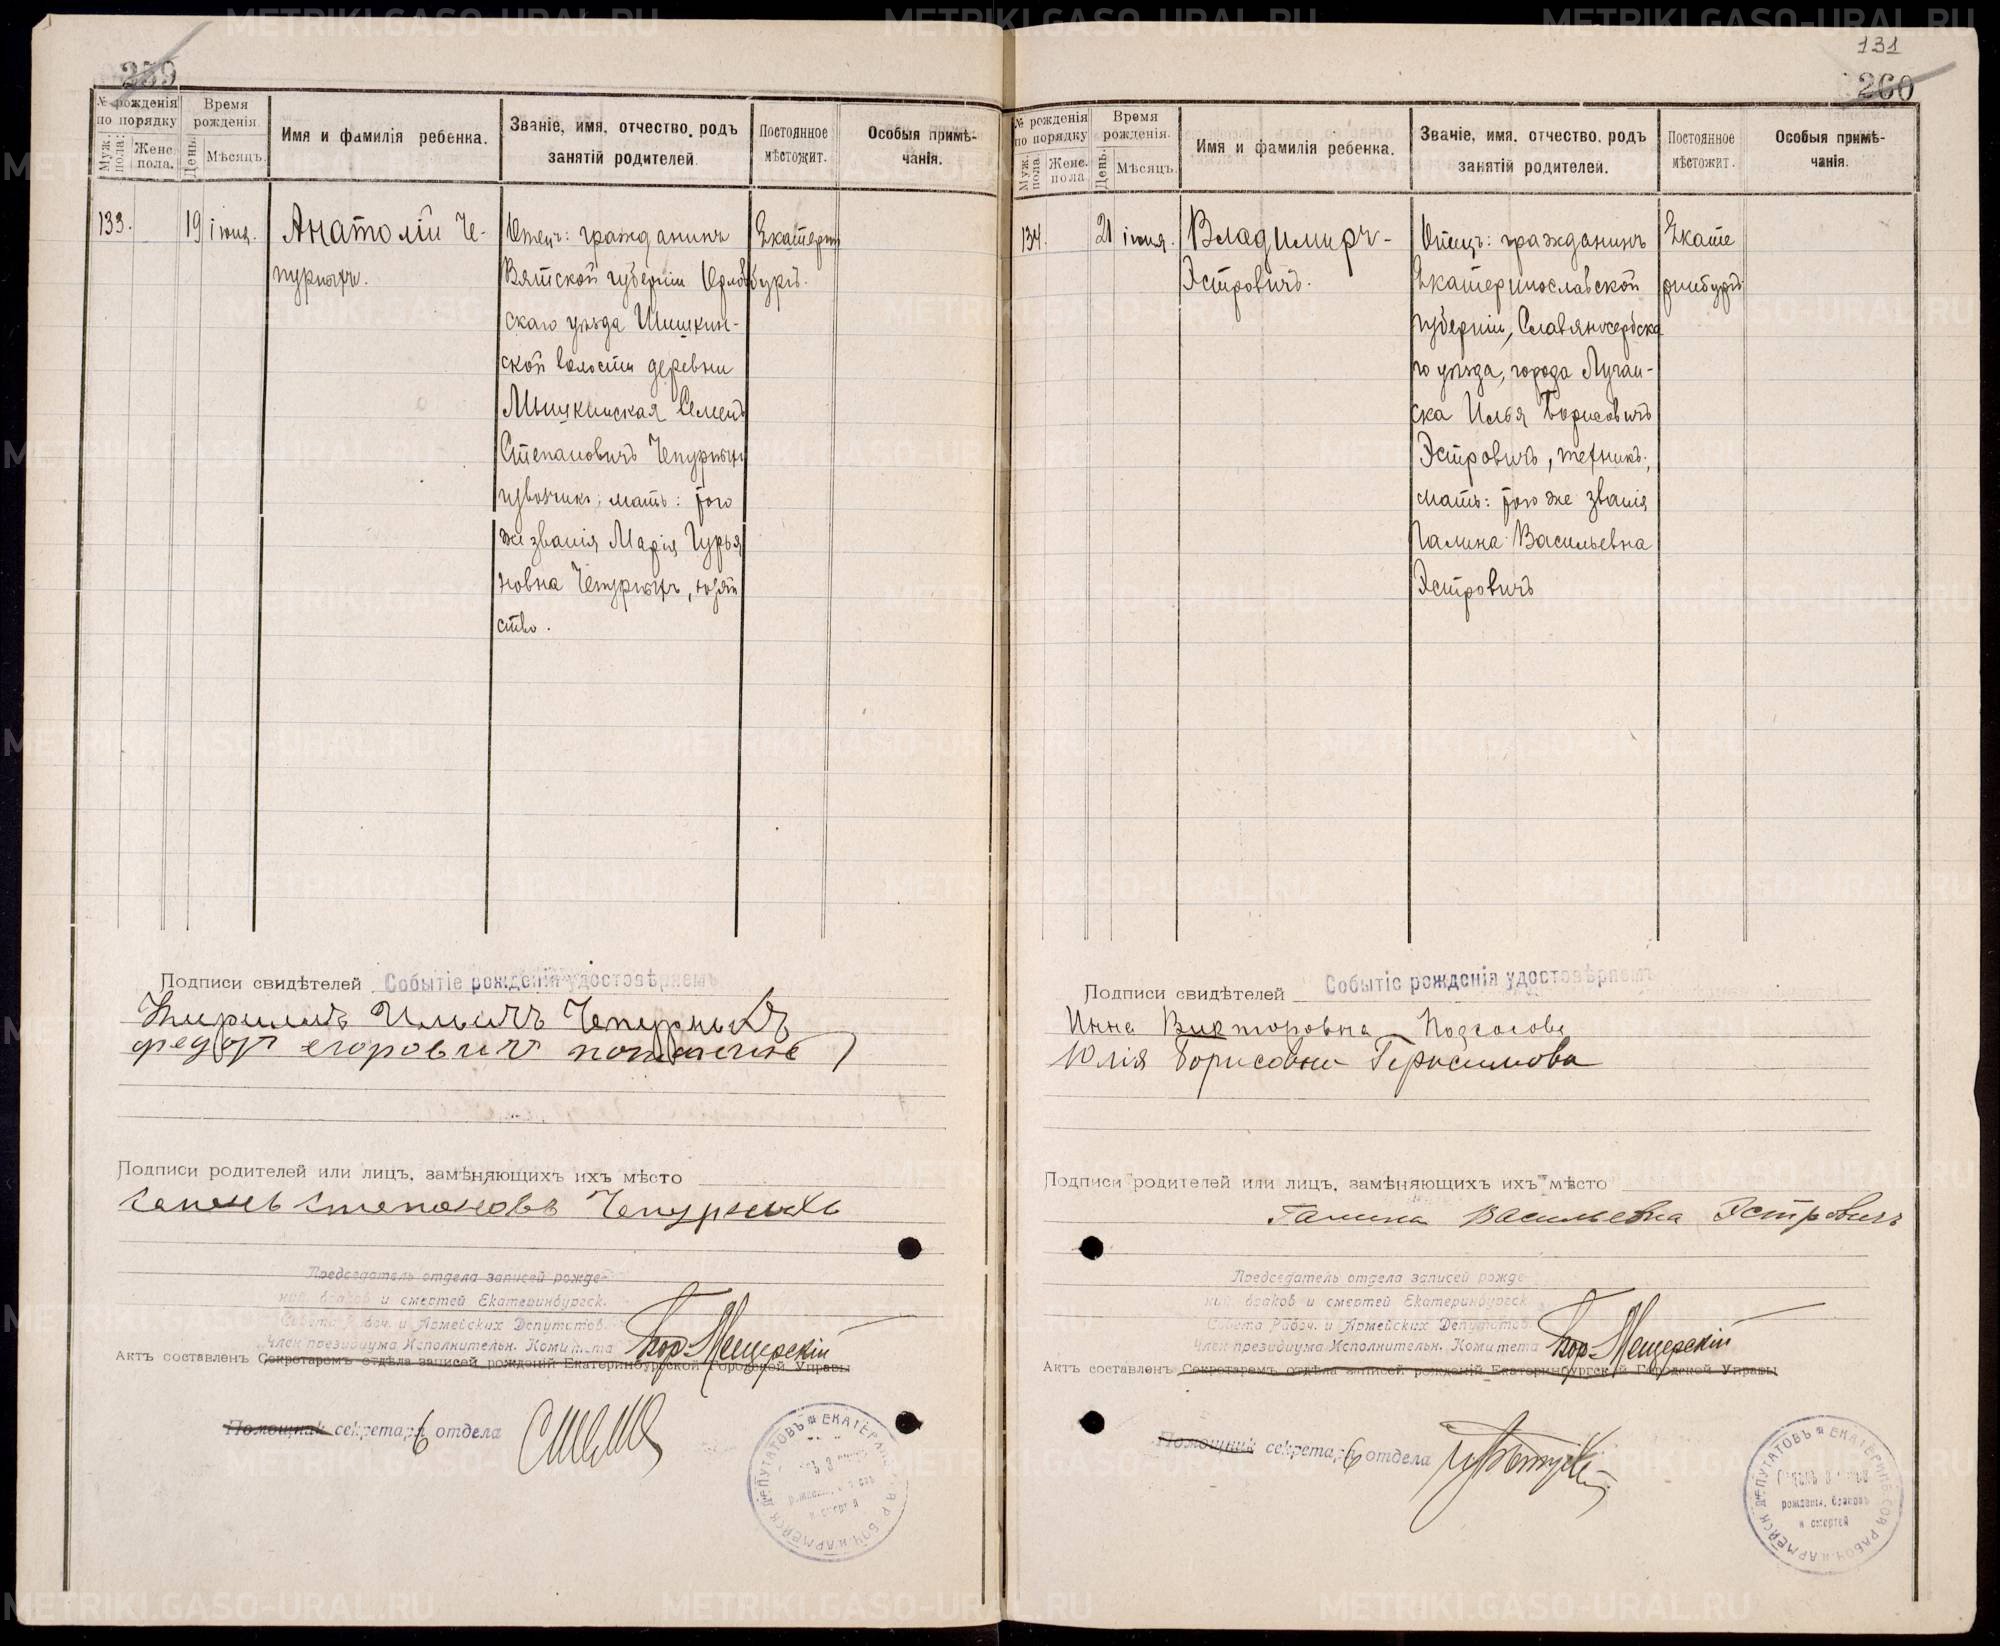 131
259
№ рожденія по порядку
Муж. пола.
Женс. пола.
Время рожденія.
День.
Мѣсяцъ.
Имя и фамилія ребенка.
Званіе, имя, отчество, родъ занятій родителей.
Постоянное мѣстожит.
Особыя примѣчанія.
133.
19
іюня.
Анатолій Че-
пурныхъ.
Отецъ: гражданинъ
Вятской губерніи Орлов
скаго уѣзда Шишкин-
ской волости деревни
Мышкинская Семенъ
Степановичъ Чепурныхъ
извозчикъ; мать: того
же званія Марія Гурья
новна Чепурныхъ, хозяй
ство.
Екатерин
бургъ.
Подписи свидѣтелей Событіе рожденія удостовѣряемъ
Кирилъ Ильичъ Чепурныхъ
федоръ егоровичъ
Подписи родителей или лицъ, замѣняющихъ ихъ мѣсто
Чепурныхъ
Председатель отдела записей рожде-
ний, браков и смертей Екатеринбургск.
Совета Рабоч. и Армейских Депутатов.
Член президиума Исполнительн. Комитета Бор. Мещерскій
Актъ составленъ Секретаремъ отдѣла записей рожденій Екатеринбургской Городской Управы
Помощник секретаря отдела
260
№ рожденія по порядку
Муж. пола
Женс. пола
Время рожденія.
День.
Мѣсяцъ.
Имя и фамилія ребенка.
Званіе, имя, отчество, родъ занятій родителей.
Постоянное мѣстожит.
Особыя примѣчанія.
134.
21
іюня.
Владимиръ-
Эстровичъ.
Отецъ: гражданинъ
Екатеринославской
губерніи, Славяносербска
го уѣзда, города Луган-
ска Илья Борисовичъ
Эстровичъ, техникъ;
мать: того же званія
Галина Васильевна
Эстровичъ
Екате
ринбургъ
Подписи свидѣтелей Событіе рожденія удостовѣряемъ
Инна Викторовна
Юлія Борисовна Герасимова
Подписи родителей или лицъ, замѣняющихъ ихъ мѣсто
Галина Васильевна Эстровичъ
Председатель отдела записей рожде-
ний, браков и смертей Екатеринбургск.
Совета Рабоч. и Армейских Депутатов.
Член президиума Исполнительн. Комитета Бор. Мещерскій
Актъ составленъ Секретаремъ отдѣла записей рожденій Екатеринбургской Городской Управы
Помощник секретаря отдела
рожденія, браковъ
и смертей
METRIKI.GASO-URAL.RU